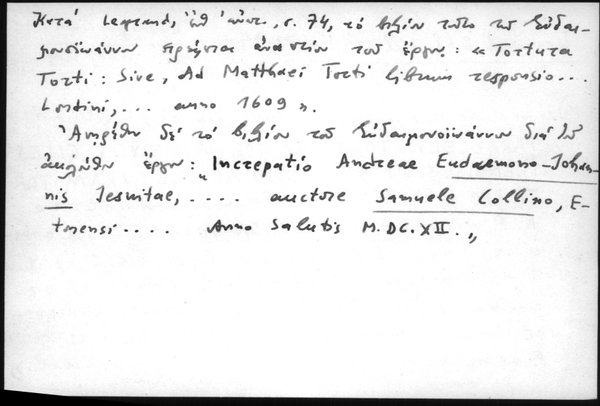 Κατά Legrand, ἔνθ' ἀνωτ., σ. 74, τό βιβλίον τοῦτο τοῦ Εὐδαι-
μονοϊωάννου εἶναι τοῦ ἔργου: « Tortura
Torti: Sive, Ad Matthaei Torti librum responsio...
Londini,... anno 1609 ».
Ἀνῃρέθη δέ τό βιβλίον τοῦ Εὐδαιμονοϊωάννου διά τοῦ
ἀκολούθου ἔργου: „Increpatio Andreae Eudaemono-Johan-
nis Iesuitae, .... auctore Samuele Collino, E-
tonensi .... Anno Salutis M.DC.XII.„